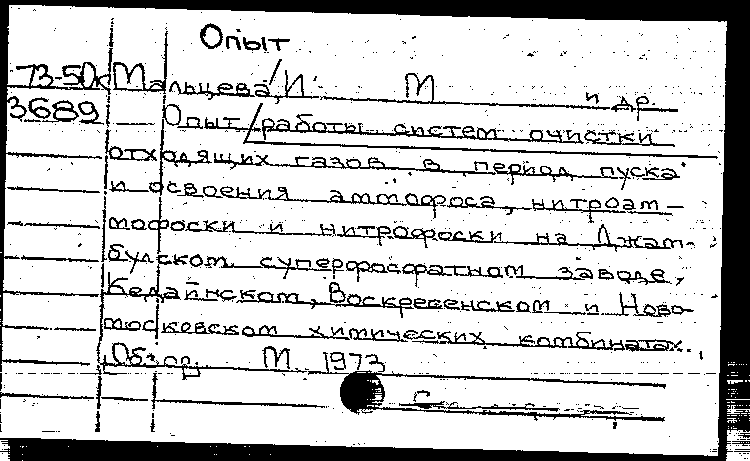 Опыт
73-50к Мальцева, И М и др.
3689 Опыт/работы систем очистки
отходящих газов в период пуска
и освоения аммофоса, нитроам-
мофоски и нитрофоски на Джам-
булском суперфосфатном заводе,
Кедайнском, Воскресенском и Ново-
московском химических комбинатах.
[Обзор] М 1973